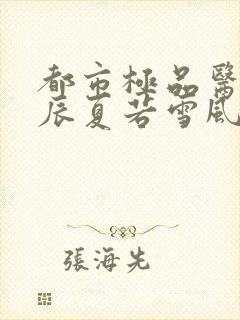 都市極品醫
辰夏若雪風
張海先